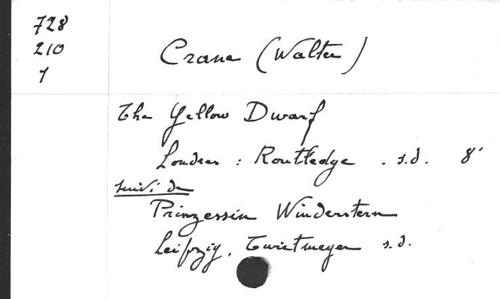 728
210
1
Crane (Walter)
The Yellow Dwarf
Londres : Routledge . s.d. 8°
suivi de
Prinzessin Winderstern
Leipzig, Twietmeyer s.d.